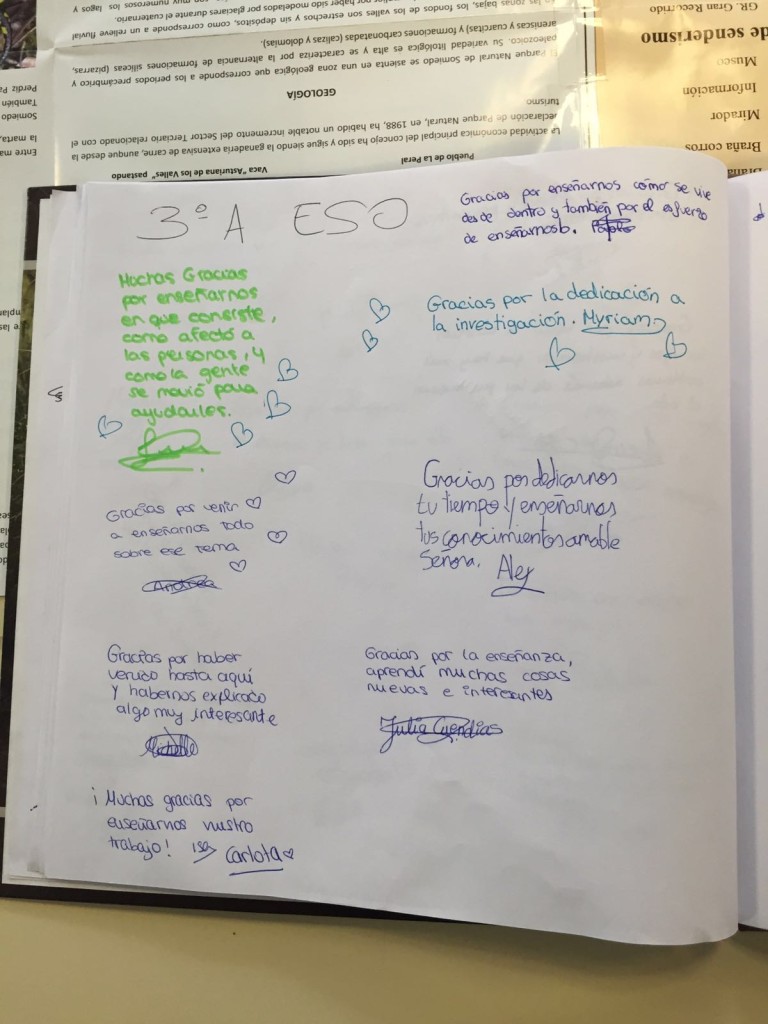 en las zonas bajas, los fondos de los valles son estrechos y sin depósitos, como corresponde a un relieve fluvial
areniscas y cuarcitas) y formaciones carbonatadas (calizas y dolomías).
paleozoico. Su variedad litológica es alta y se caracteriza por la alternancia de formaciones silíceas (pizarras,
El Parque Natural de Somiedo se asienta en una zona geológica que corresponde a los periodos precámbrico y
GEOLOGÍA
turismo
declaración de Parque Natural, en 1988, ha habido un notable incremento del Sector Terciario relacionado con el
La actividad económica principal del concejo ha sido y sigue siendo la ganadería extensiva de carne, aunque desde la
Pueblo de La Peral
Vaca "Asturiana de los Valles" pastando
GR. Gran Recorrido
de senderismo
Museo
Información
Mirador
Braña corros
Braña
Perdiz
También
Somiedo
la marta,
Entre
3º A ESO
Gracias por enseñarnos cómo se vive
desde dentro y también por el esfuerzo
de enseñarnoslo.
Muchas Gracias
por enseñarnos
en que consiste,
como afectó a
las personas, y
como la gente
se movió para
ayudarles.
Gracias por la dedicación a
la investigación. Myriam
Gracias por venir
a enseñarnos todo
sobre ese tema
Andrea
Gracias por dedicarnos
tu tiempo y enseñarnos
tus conocimientos amable
Señora. Alex
Gracias por haber
venido hasta aquí
y habernos explicado
algo muy interesante
Michelle
Gracias por la enseñanza,
aprendí muchas cosas
nuevas e interesantes
Julia Cuendias
¡Muchas gracias por
enseñarnos vuestro
trabajo! Carlota